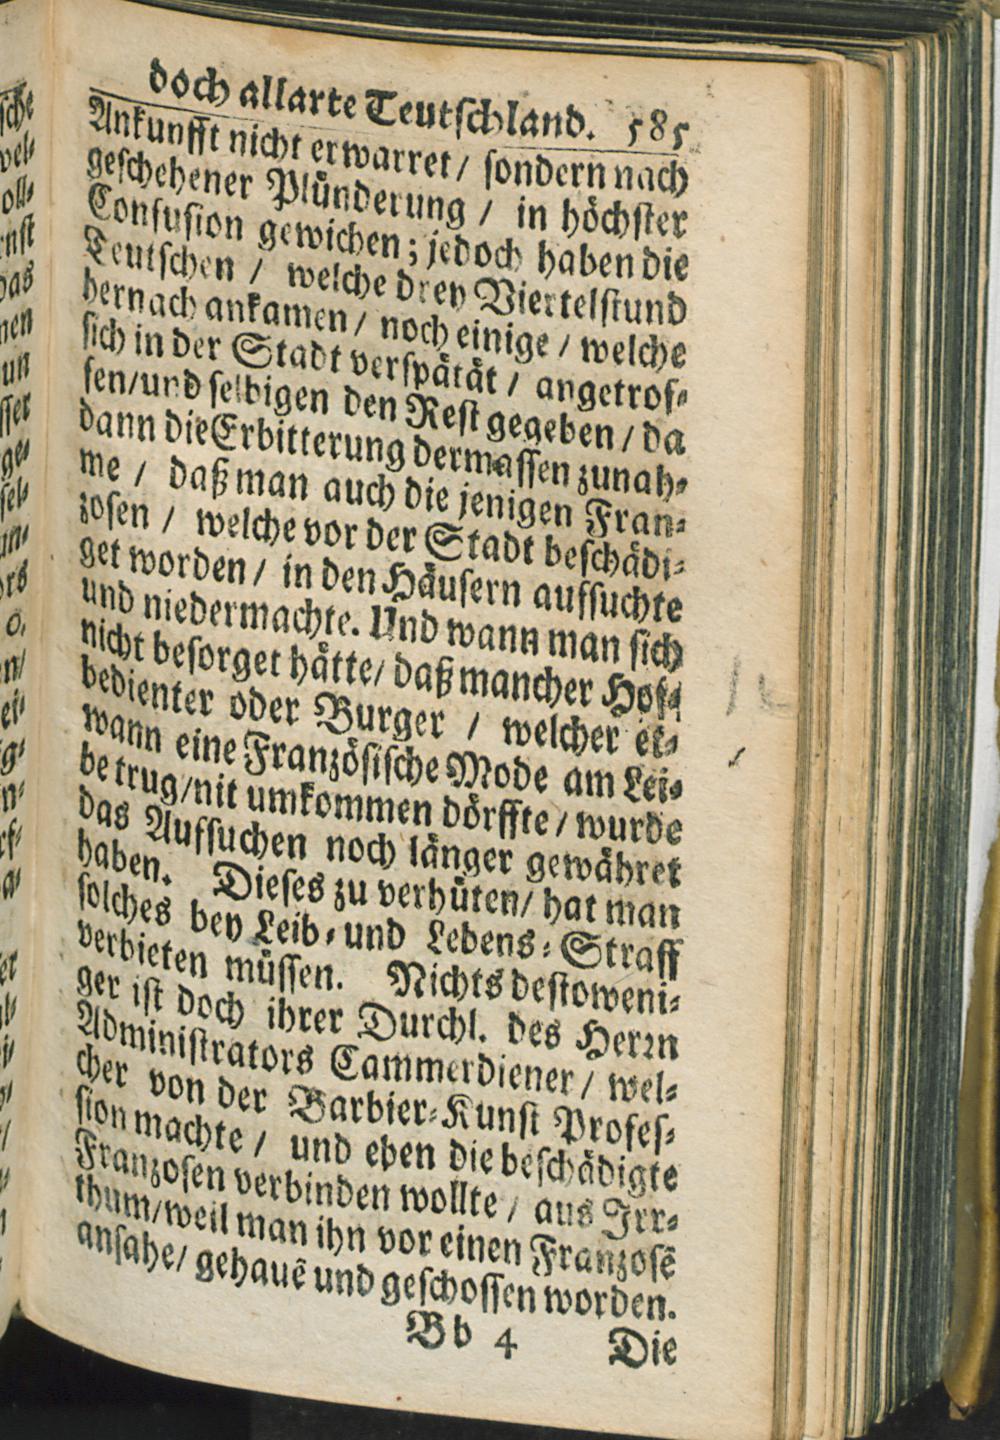 doch allarte Teutſchland. 585
Ankunfft nicht erwarret / ſondern nach
geſchehener Plünderung / in höchſter
Confuſion gewichen; jedoch haben die
Teutſchen / welche drey Viertelſtund
hernach ankamen / noch einige / welche
ſich in der Stadt verſpätät / angetrof⸗
fen/und ſelbigen den Reſt gegeben / da
dann die Erbitterung dermaſſen zunah⸗
me / daß man auch die jenigen Fran⸗
zoſen / welche vor der Stadt beſchädi⸗
get worden / in den Häuſern aufſuchte
und niedermachte. Und wann man ſich
nicht beſorget hätte/ daß mancher Hof⸗
bedienter oder Burger / welcher et⸗
wann eine Franzöſiſche Mode am Lei⸗
be trug/nit umkommen dörffte / wurde
das Aufſuchen noch länger gewähret
haben. Dieſes zu verhüten/ hat man
ſolches bey Leib⸗ und Lebens⸗Straff
verbieten müſſen. Nichts deſtoweni⸗
ger iſt doch ihrer Durchl. des Herꝛn
Adminiſtrators Cammerdiener / wel⸗
cher von der Barbier⸗Kunſt Profeſ⸗
ſion machte / und eben die beſchädigte
Franzoſen verbinden wollte / aus Irr⸗
thum/weil man ihn vor einen Franzoſẽ
anſahe/ gehauẽ und geſchoſſen worden.
Bb 4 Die